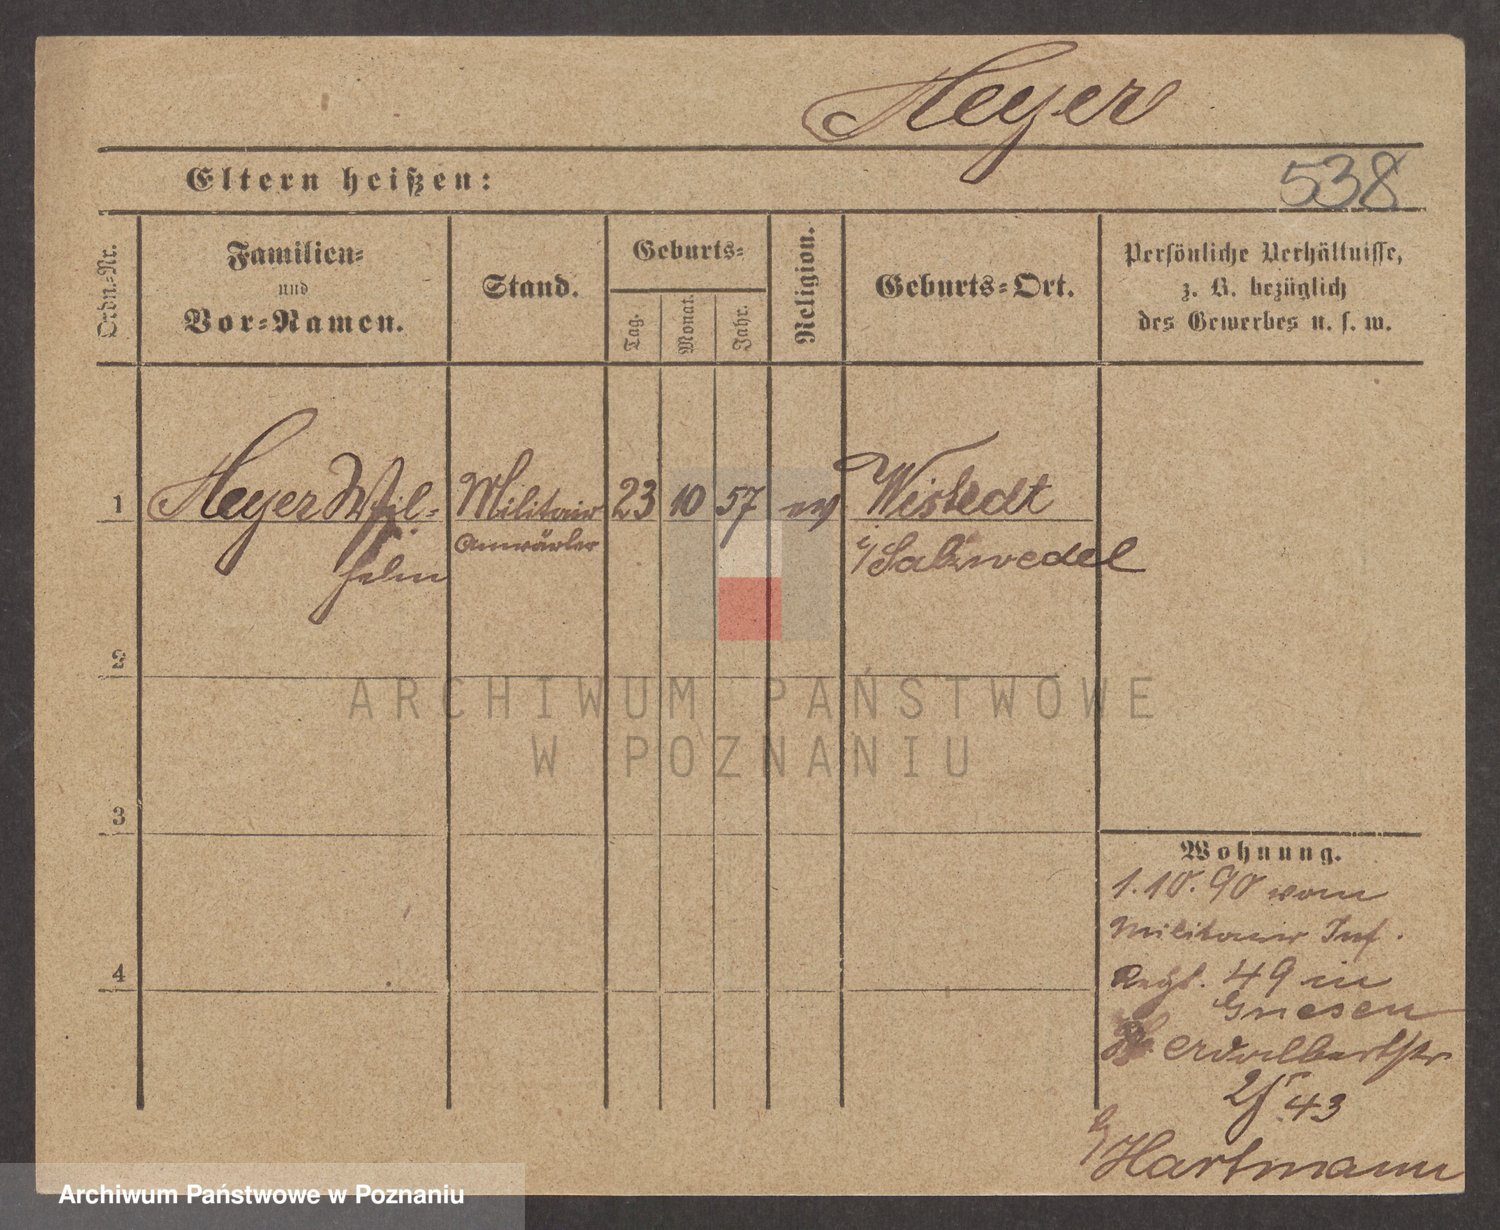 Heyer
Eltern heißen:
538
Ordn.-Nr.
Familien-
und
Vor-Namen.
Stand.
Geburts-
Tag.
Monat.
Jahr.
Religion.
Geburts-Ort.
Persönliche Verhältnisse,
z. B. bezüglich
des Gewerbes u. s. w.
1 Heyer Wil- Militair 23 10 57 ev Wistedt
helm Anwärter i/ Salzwedel
2
ARCHIWUM PAŃSTWOWE
W POZNANIU
3
Wohnung.
1.10.90 vom
Militair Inf.
4
Regt. 49 in
Gnesen
43
b/ Hartmann
Archiwum Państwowe w Poznaniu